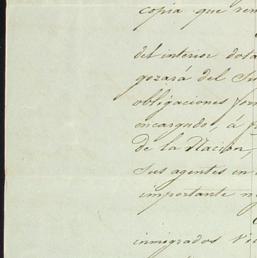 copia que rem
del interior dota
gozará del Su
obligaciones for
encargado, á
de la Nacion,
sus agentes en
importante n
inmigrados